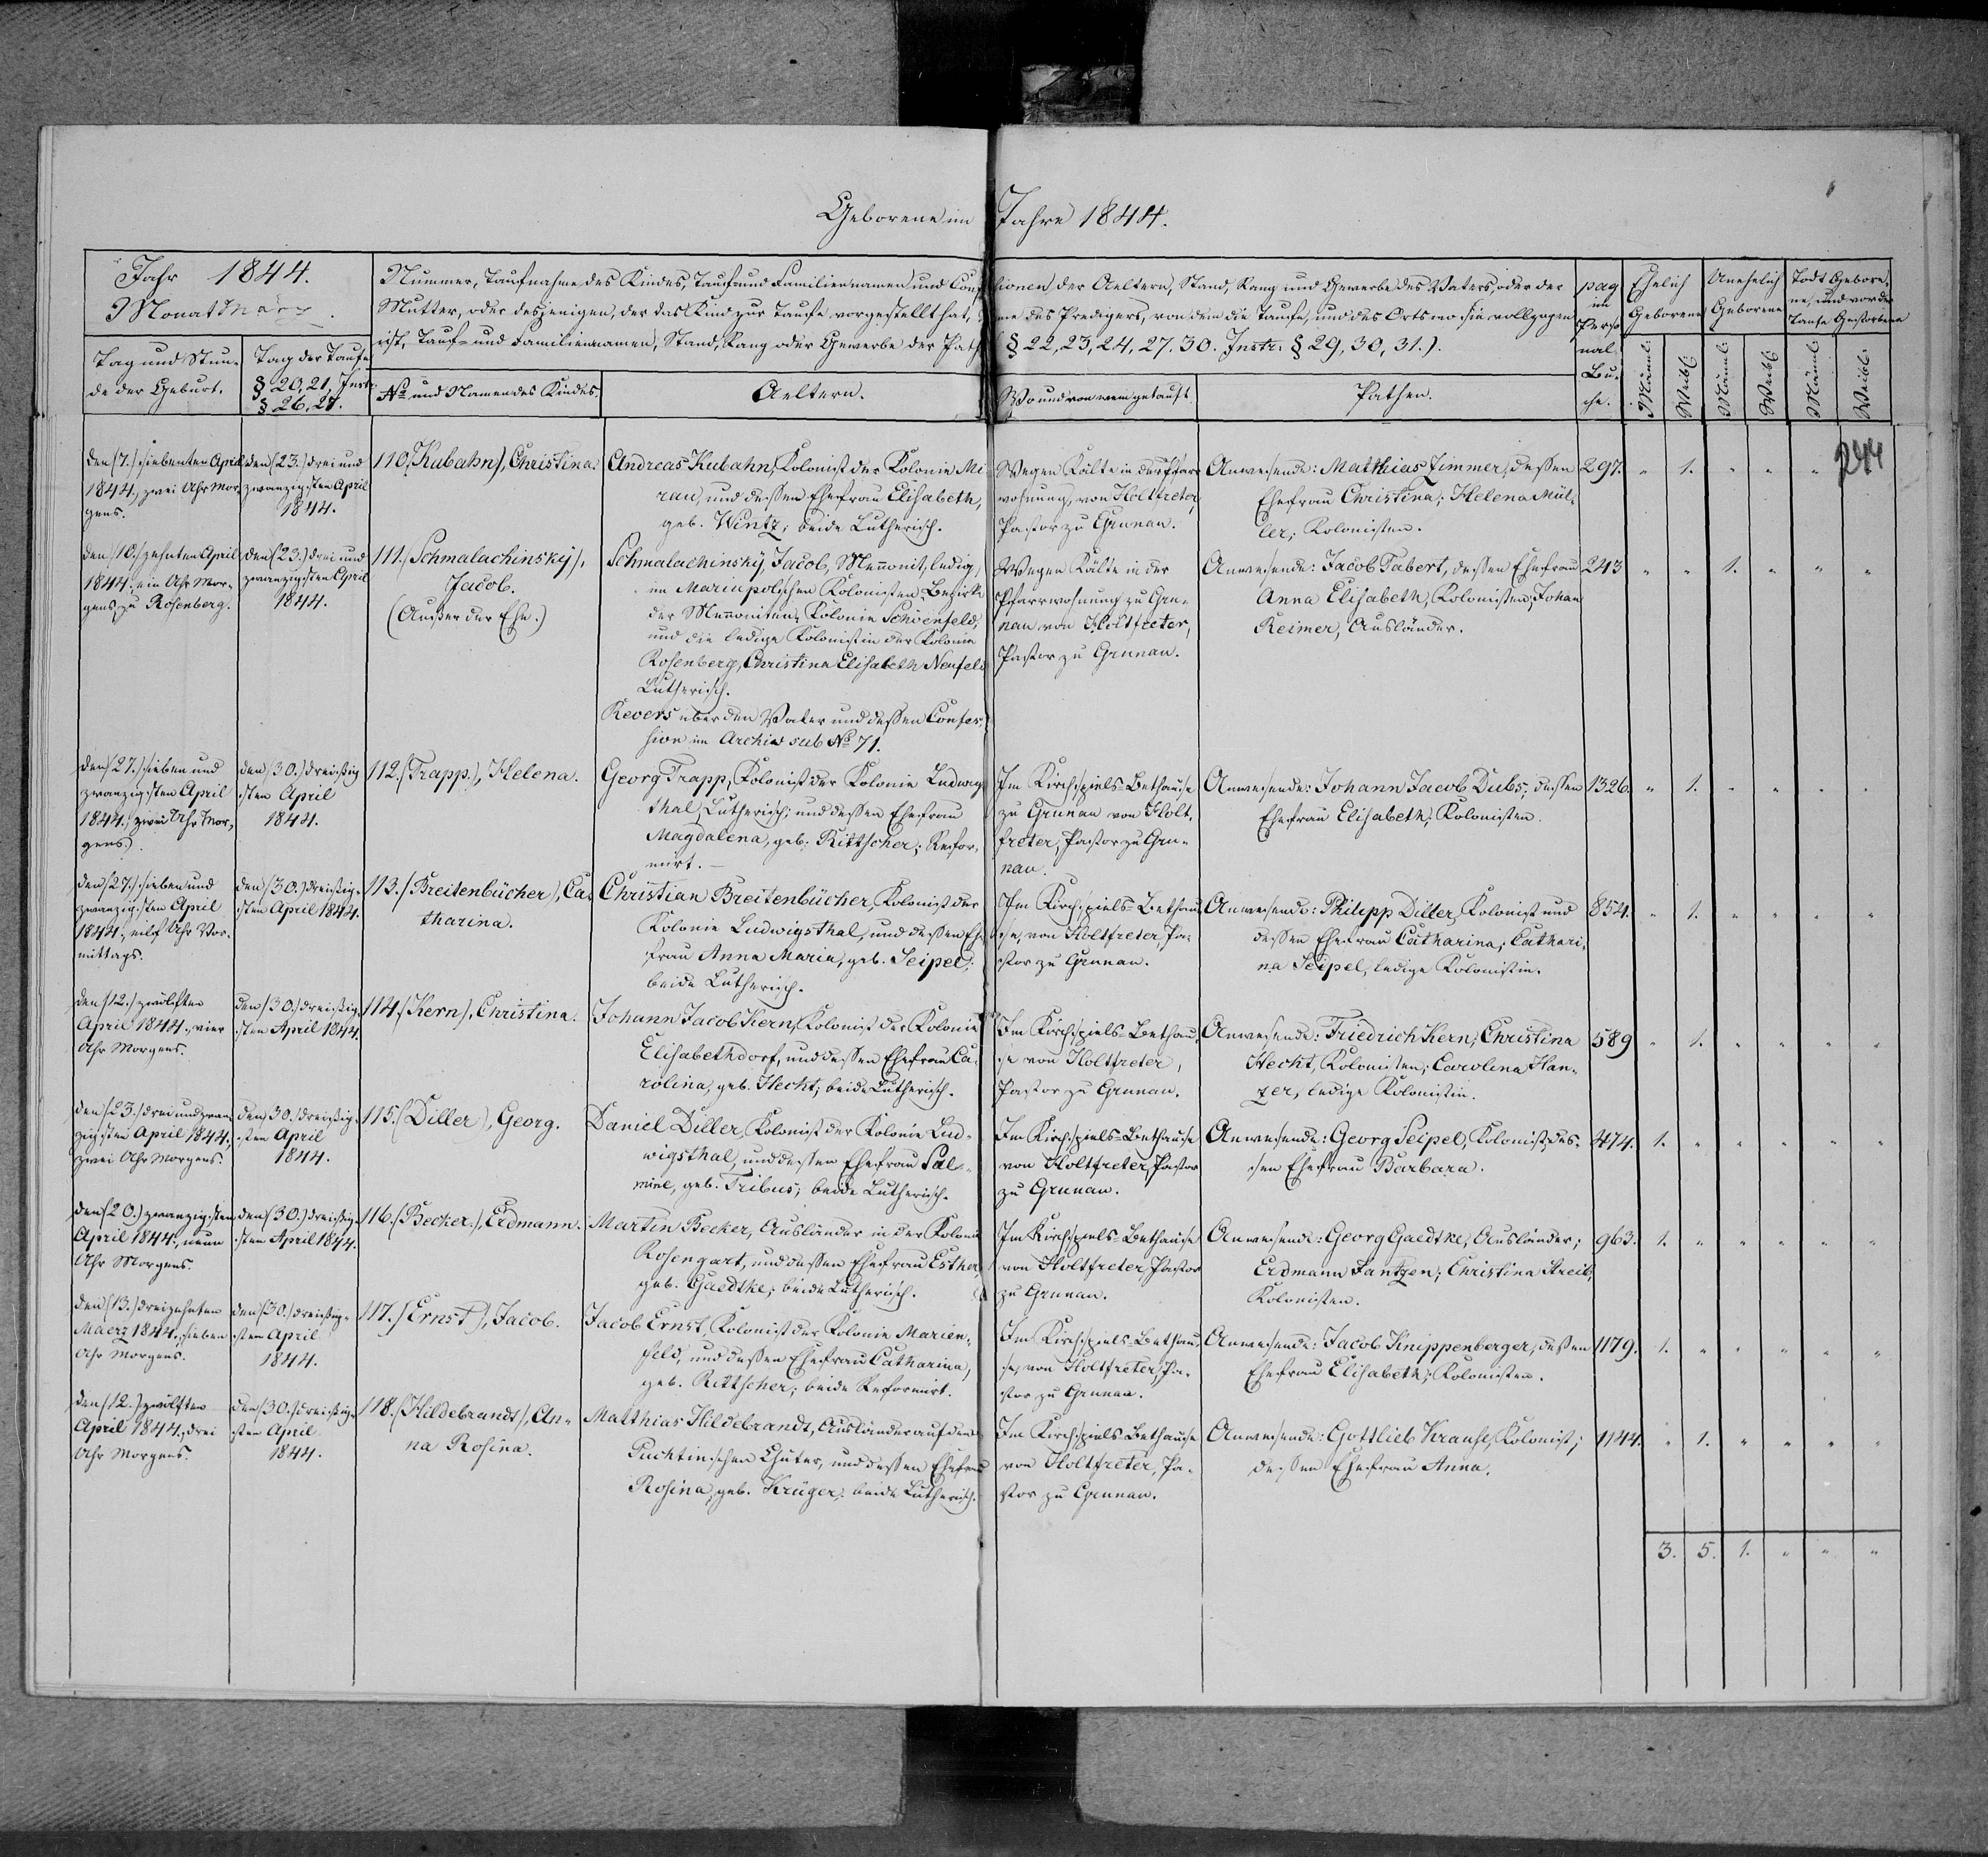 Geborene im Jahre 1844.
Jahr 1844.
Monat März.
Nummer, Taufnahme des Kindes, Tauf- und Familiennamen und Confessionen der Aeltern, Stand, Rang und Gewerbe des Vaters, oder der
Mutter, oder desjenigen, der das Kind zur Taufe vorgestellt hat, Name des Predigers, von dem die Taufe, und des Orts wo sie vollzogen
ist, Tauf- und Familiennamen, Stand, Rang oder Gewerbe der Pathen (§ 22, 23, 24, 27. 30. Instr: § 29, 30, 31.).
pag
im
Perso
nal
Bu-
che.
Ehelich
Geborene
Unehelich
Geborene
Todt Gebore-
ne, und vor der
Taufe Gestorbene
Tag und Stun-
de der Geburt.
Tag der Taufe
§ 20, 21, Instr:
§ 26, 27.
No und Namen des Kindes.
Aeltern.
Wo und von wem getauft.
Pathen.
Mänl:
Weibl:
Mänl:
Weibl:
Mänl:
Weibl:
244
den (7.) siebenten April
1844, zwei Uhr Mor-
gens.
den (23.) drei und
zwanzigsten April
1844.
110. (Kubahn), Christina.
Andreas Kubahn, Kolonist der Kolonie Mi
rau, und dessen Ehefrau Elisabeth,
geb. Wintz; beide Lutherisch.
Wegen Kälte in der Pfarr
wohnung, von Holtfreter,
Pastor zu Grunau.
Anwesende: Matthias Zimmer, dessen
Ehefrau Christina; Helena Mül-
ler, Kolonisten.
297. " 1. " " "
den (10.) zehnten April
1844, ein Uhr Mor-
gens, zu Rosenberg.
den (23.) drei und
zwanzigsten April
1844.
111. (Schmalachinsky),
Jacob.
(Außer der Ehe.)
Schmalachinsky Jacob, Mennonit, ledig,
im Mariupolschen Kolonisten Bezirke
der Mennoniten-Kolonie Schoenfeld,
und die ledige Kolonistin der Kolonie
Rosenberg, Christina Elisabeth Neufeld
Lutherisch.
Revers über den Vater und dessen Confes-
sion im Archiv sub No 71.
Wegen Kälte in der
Pfarrwohnung zu Gru-
nau von Holtfreter,
Pastor zu Grunau.
Anwesende: Jacob Tabert, dessen Ehefrau
Anna Elisabeth, Kolonisten; Johan
Reimer, Ausländer.
243 " " 1. " " "
den (27.) sieben und
zwanzigsten April
1844, zwei Uhr Mor-
gens.
den (30.) dreißig
sten April
1844.
112. (Trapp.), Helena.
Georg Trapp, Kolonist der Kolonie Ludwigs
thal, Lutherisch; und dessen Ehefrau
Magdalena, geb. Rittscher; Refor-
mirt.
Im Kirchspiels-Bethause
zu Grunau von Holt-
freter, Pastor zu Gru-
nau.
Anwesende: Johann Jacob Dubs, dessen
Ehefrau Elisabeth; Kolonisten.
1326. " 1. " " " "
den (27.) sieben und
zwanzigsten April
1844, eilf Uhr Vor-
mittags.
den (30.) dreißig-
sten April 1844.
113. (Breitenbücher), Ca-
tharina.
Christian Breitenbücher, Kolonist der
Kolonie Ludwigsthal, und dessen Ehe-
frau Anna Maria, geb. Seipel;
beide Lutherisch.
Im Kirchspiels-Bethau
se, von Holtfreter, Pa-
stor zu Grunau.
Anwesende: Philipp Diller, Kolonist und
dessen Ehefrau Catharina; Cathari-
na Seipel, ledige Kolonistin.
854. " 1. " " " "
den (12.) zwölften
April 1844, vier
Uhr Morgens.
den (30.) dreißig-
sten April 1844.
114. (Kern), Christina.
Johann Jacob Kern, Kolonist der Kolonie
Elisabethdorf, und dessen Ehefrau Ca-
rolina, geb. Hecht; beide Lutherisch.
Im Kirchspiels-Bethau-
se von Holtfreter,
Pastor zu Grunau.
Anwesende: Friedrich Kern; Christina
Hecht, Kolonisten; Carolina Han-
zer, ledige Kolonistin.
589 " 1. " " " "
den (23.) drei und zwan-
zigsten April 1844,
zwei Uhr Morgens.
den (30.) dreißig-
sten April
1844.
115. (Diller), Georg.
Daniel Diller, Kolonist der Kolonie Lud-
wigsthal, und dessen Ehefrau Sal-
mine, geb. Tribus; beide Lutherisch.
Im Kirchspiels-Bethause
von Holtfreter, Pastor
zu Grunau.
Anwesende: Georg Seipel, Kolonist, des-
sen Ehefrau Barbara.
474. 1. " " " " "
den (20.) zwanzigsten
April 1844, neun
Uhr Morgens.
den (30.) dreißig-
sten April 1844.
116. (Becker.), Erdmann.
Martin Becker, Ausländer in der Kolonie
Rosengart, und dessen Ehefrau Esther,
geb. Gaedtke; beide Lutherisch.
Im Kirchspiels-Bethause
von Holtfreter, Pastor
zu Grunau.
Anwesende: Georg Gaedtke, Ausländer;
Erdmann Jantzen; Christina Streib,
Kolonisten.
963. 1. " " " " "
den (13.) dreizehnten
Maerz 1844, sieben
Uhr Morgens.
den (30.) dreißig-
sten April
1844.
117. (Ernst), Jacob.
Jacob Ernst, Kolonist der Kolonie Marien-
feld, und dessen Ehefrau Catharina,
geb. Rittscher; beide Reformirt.
Im Kirchspiels-Bethau-
se, von Holtfreter, Pa-
stor zu Grunau.
Anwesende: Jacob Knippenberger, dessen
Ehefrau Elisabeth; Kolonisten.
1179. 1. " " " " "
den (12.) zwölften
April 1844, drei
Uhr Morgens.
den (30.) dreißig-
sten April
1844.
118. (Hildebrandt), An-
na Rosina.
Matthias Hildebrandt, Ausländer auf den
Puchtinschen Gütern, und dessen Ehefrau
Rosina, geb. Krüger; beide Lutherisch.
Im Kirchspiels-Bethause
von Holtfreter, Pa-
stor zu Grunau.
Anwesende: Gottlieb Krause, Kolonist;
dessen Ehefrau Anna.
1144. " 1. " " " "
3. 5. 1. " " "